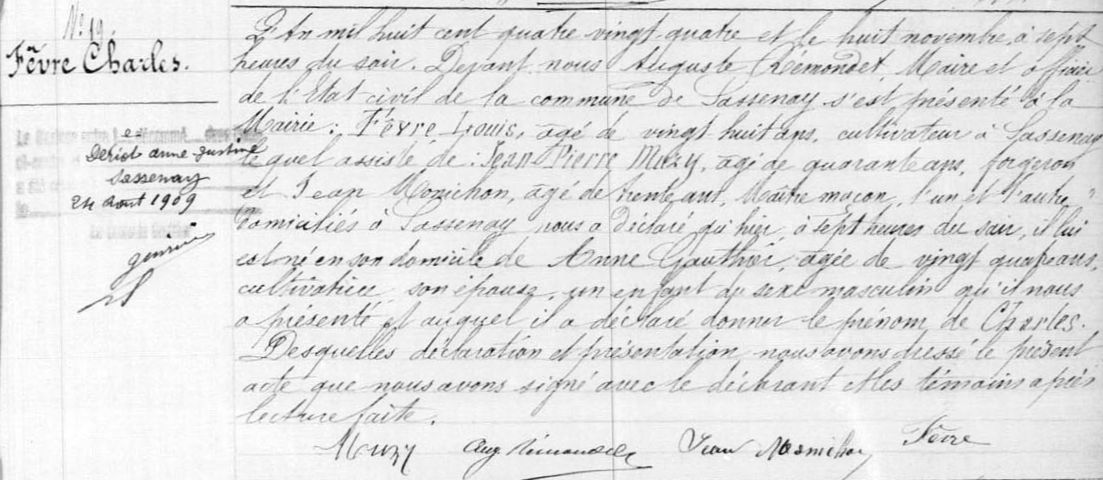 N° 19
Fèvre Charles.
e
Deriot anne justine
Sassenay
24 Aout 1909
L'An mil huit cent quatre vingt quatre et le huit novembre, à sept
heures du soir. Devant nous Auguste Rémondet, Maire et officier
de l'Etat civil de la commune de Sassenay s'est présenté à la
Mairie : Fèvre Louis, agé de vingt huit ans, cultivateur à Sassenay
lequel assisté de : Jean Pierre Muzy, agé de quarante ans, forgeron
et Jean Monichon, agé de trente ans, Maître maçon, l'un et l'autre
domiciliés à Sassenay nous a déclaré qu'hier, à sept heures du soir, il lui
est né en son domicile de Anne Gauthey, agée de vingt quatre ans,
cultivatrice son épouse, un enfant du sexe masculin qu'il nous
a présenté et auquel il a déclaré donner le prénom de Charles.
Desquelles déclaration et présentation nous avons dressé le présent
acte que nous avons signé avec le déclarant et les témoins après
lecture faite.
Muzy Aug Rémondet Jean Fèvre